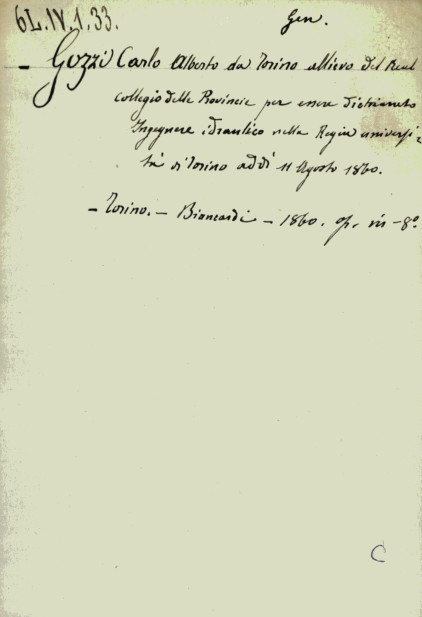 6L.IV.1.33.
Gen.
- Gozzi Carlo Alberto da Torino allievo del Real
collegio delle Provincie per essere dichiarato
Ingegnere idraulico nella Regia universi-
tà di Torino addì 11 Agosto 1860.
- Torino. - Biancardi - 1860. op. in-8°.
C